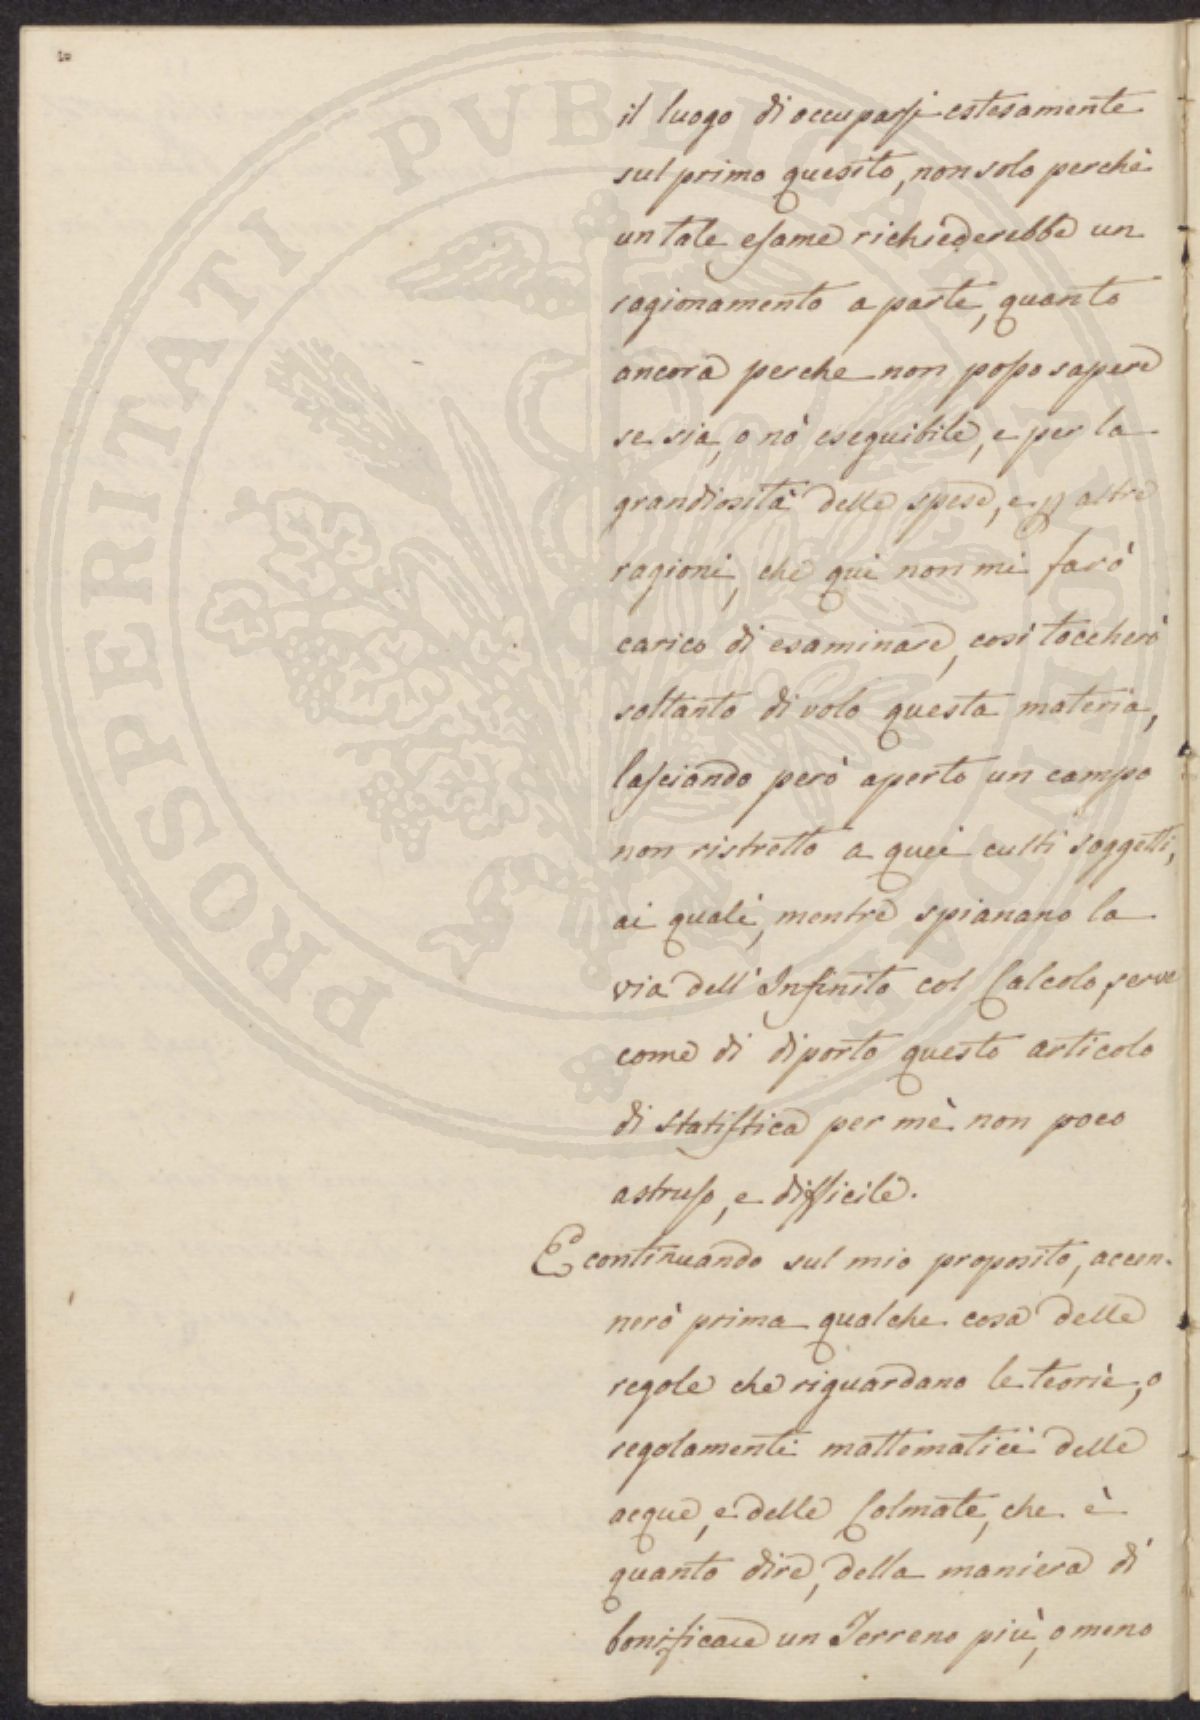 10
il luogo di occuparsi estesamente
sul primo quesito, non solo perchè
un tale esame richiederebbe un
ragionamento a parte, quanto
ancora perche non posso sapere
se sia, o nò eseguibile, e per la
grandiosità delle spese, e p altre
ragioni, che qui non mi farò
carico di esaminare, così toccherò
soltanto di volo questa materia,
lasciando però aperto un campo
non ristretto a quei culti soggetti,
ai quali, mentre spianano la
via dell' Infinito col Calcolo, serve
come di diporto questo articolo
di statistica per mè non poco
astruso, e difficile.
E continuando sul mio proposito, accen-
nerò prima qualche cosa delle
regole che riguardano le teorie, o
regolamenti mattematici delle
acque, e delle Colmate, che è
quanto dire, della maniera di
bonificare un Terreno più, o meno
PROSPERITATI PVBLICAE AVGENDAE